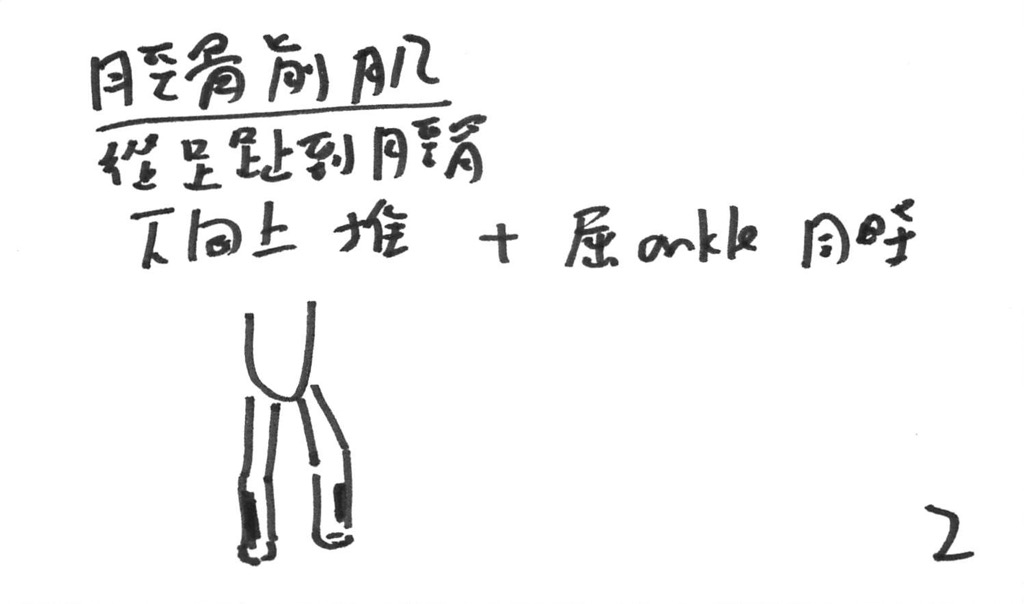 脛骨前肌
從足趾到脛骨
下向上推 + 屈 ankle 同時
2